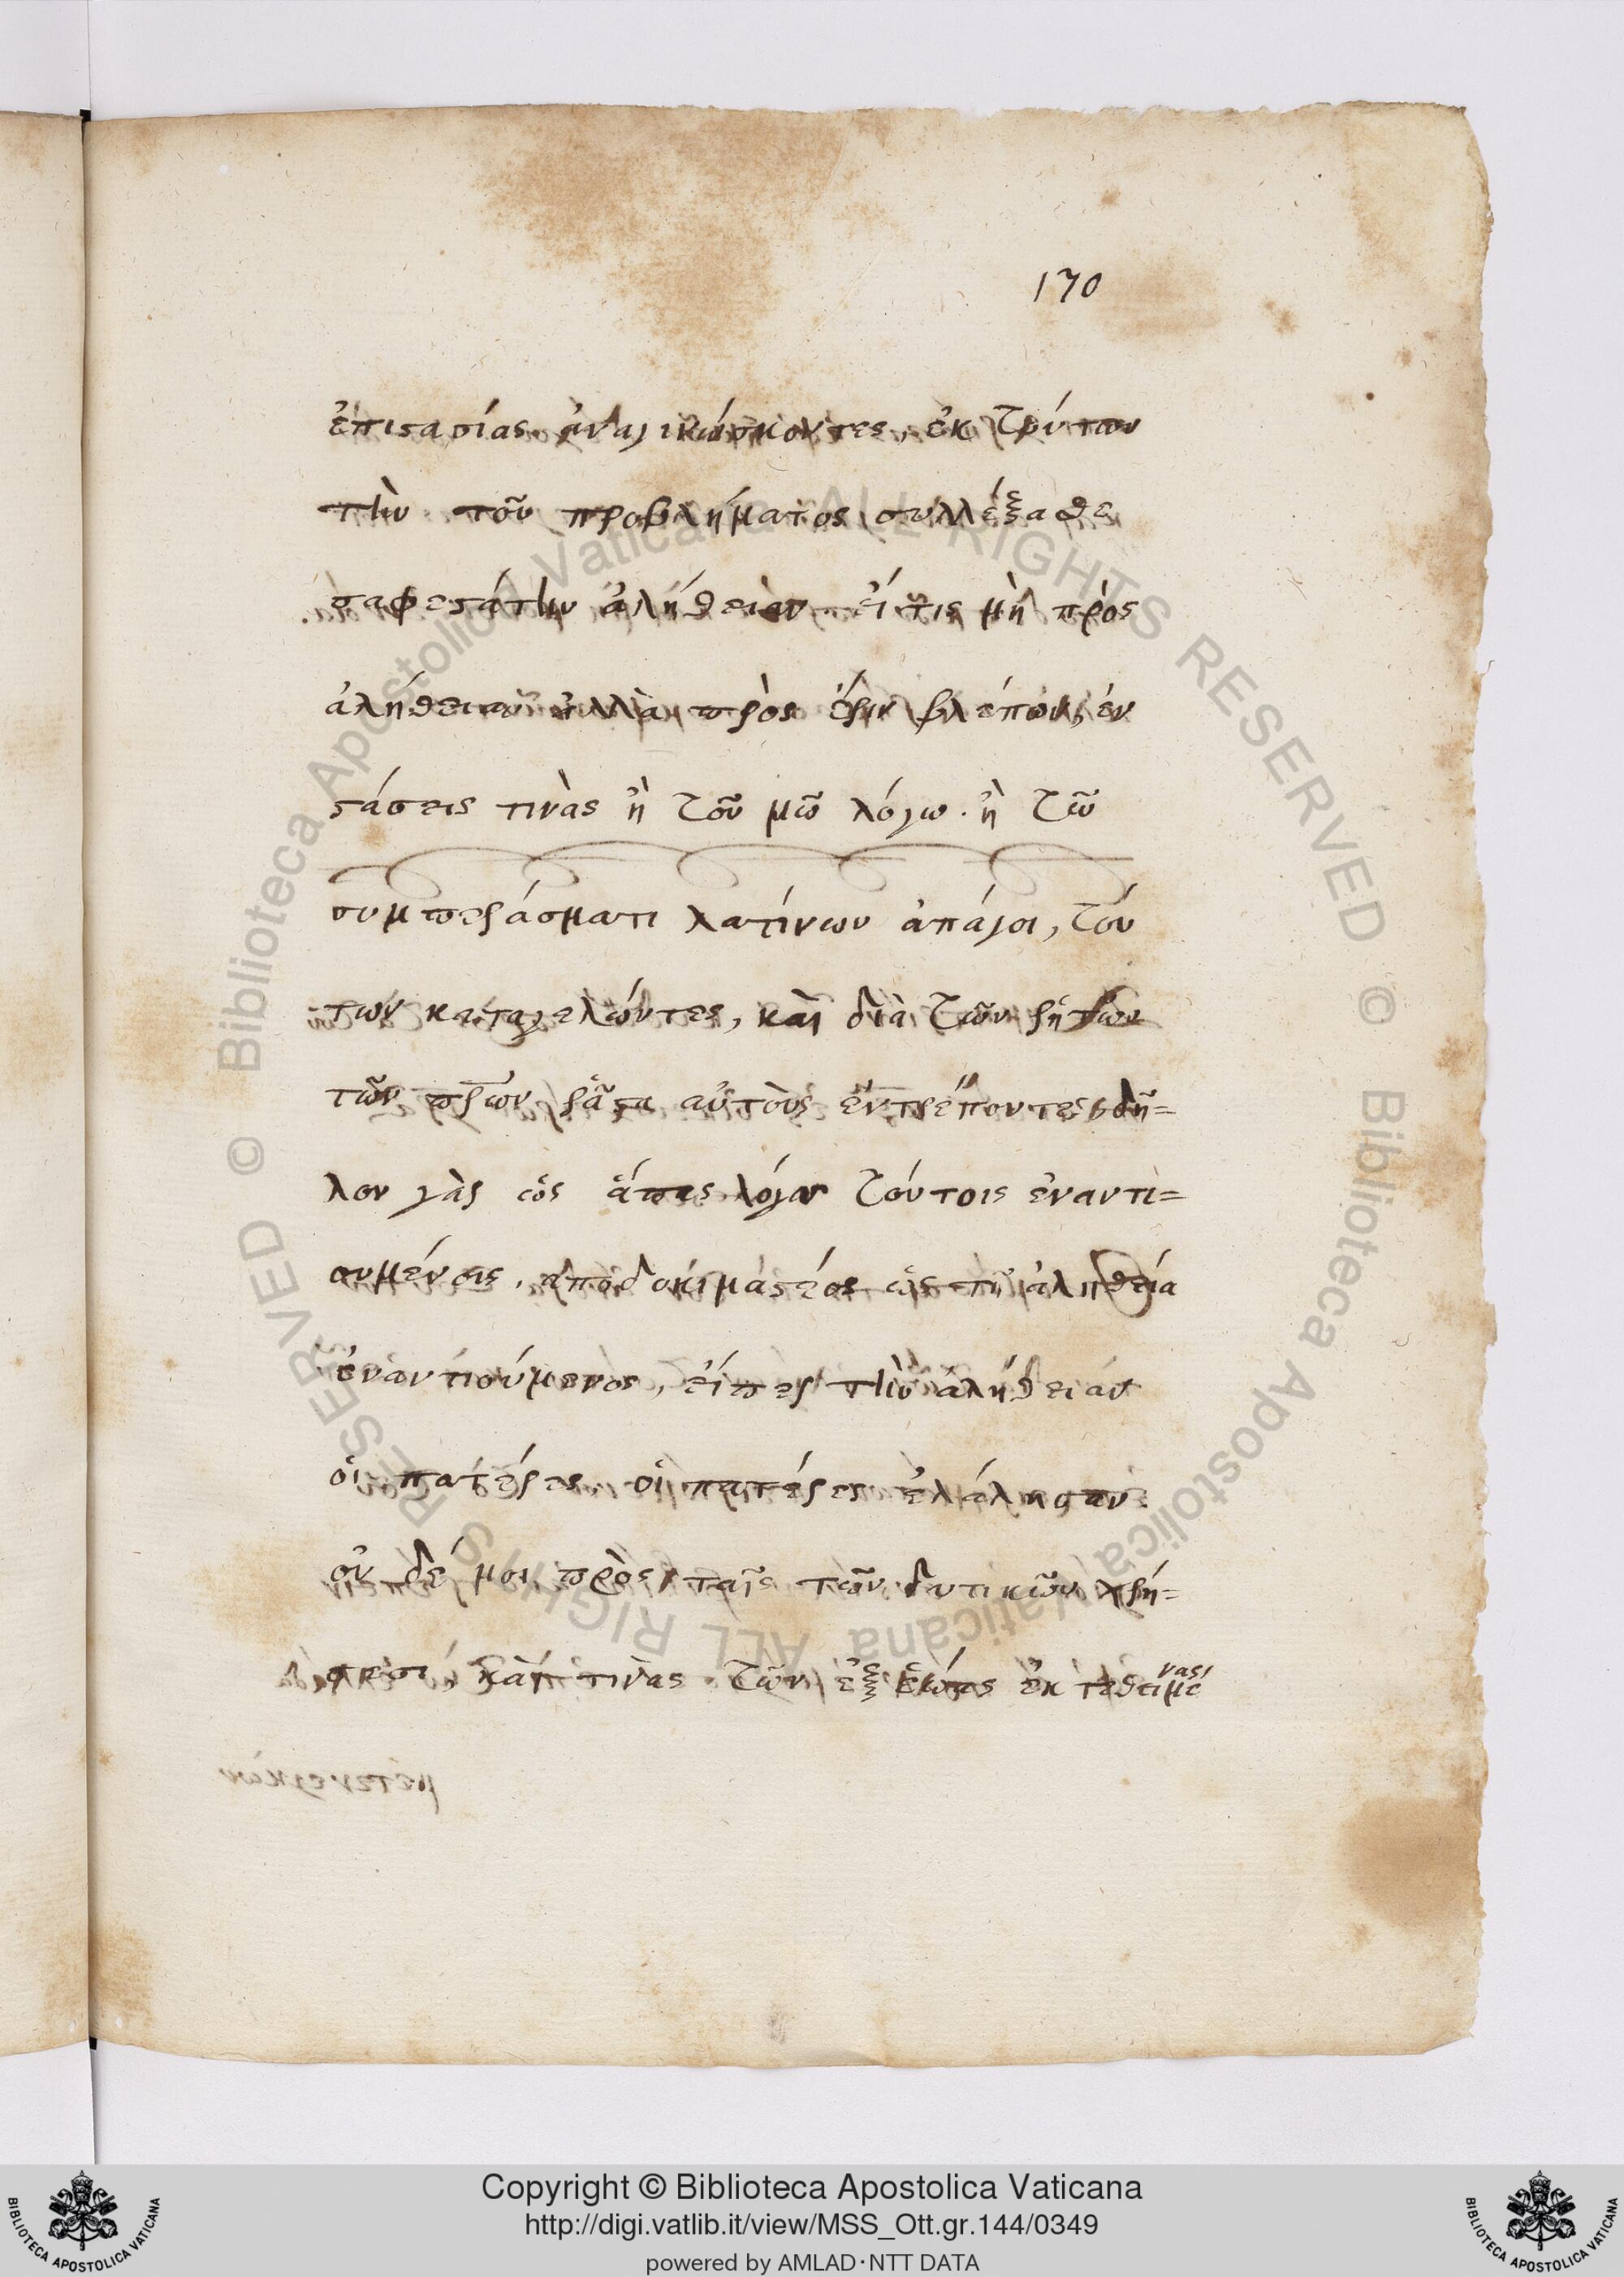 170
ἐπιστασίας ἀναγινώσκοντες, ἐκ τούτων
τὴν τοῦ προβλήματος συλλέξασθε
σαφεστάτην ἀλήθειαν· εἴ τις μὴ πρὸς
ἀλήθειαν ἀλλὰ πρὸς ἔριν βλέπων, ἐν
στάσεις τινὰς ἢ τοῦ μῶ λόγω. ἢ τῶ
συμπεράσματι λατίνων ἀπάγοι, τού
των καταγελῶντες, καὶ διὰ τῶν ῥητῶν
τῶν πρων ῥᾶστα αὐτοὺς ἐντρέποντες· δῆ=
λον γὰρ ὡς ἅπας λόγος τούτοις ἐναντι=
ουμένοις, ἀποδοκιμαστέος ὡς τῆ ἀληθεία
ἐναντιούμενος, εἴπερ τὴν ἀλήθειαν
οἱ πατέρες οἱ πατέρες ἐλάλησαν
οὐ δέ μοι πρὸς ταῖς τῶν δυτικῶν χρή=
σεσι, καί τινας τῶν ἐξ ἑώας ἐκτεθειμένας
Copyright © Biblioteca Apostolica Vaticana
http://digi.vatlib.it/view/MSS_Ott.gr.144/0349
powered by AMLAD·NTT DATA
BIBLIOTECA APOSTOLICA VATICANA
BIBLIOTECA APOSTOLICA VATICANA
© Biblioteca Apostolica Vaticana ALL RIGHTS RESERVED © Biblioteca Apostolica Vaticana ALL RIGHTS RESERVED